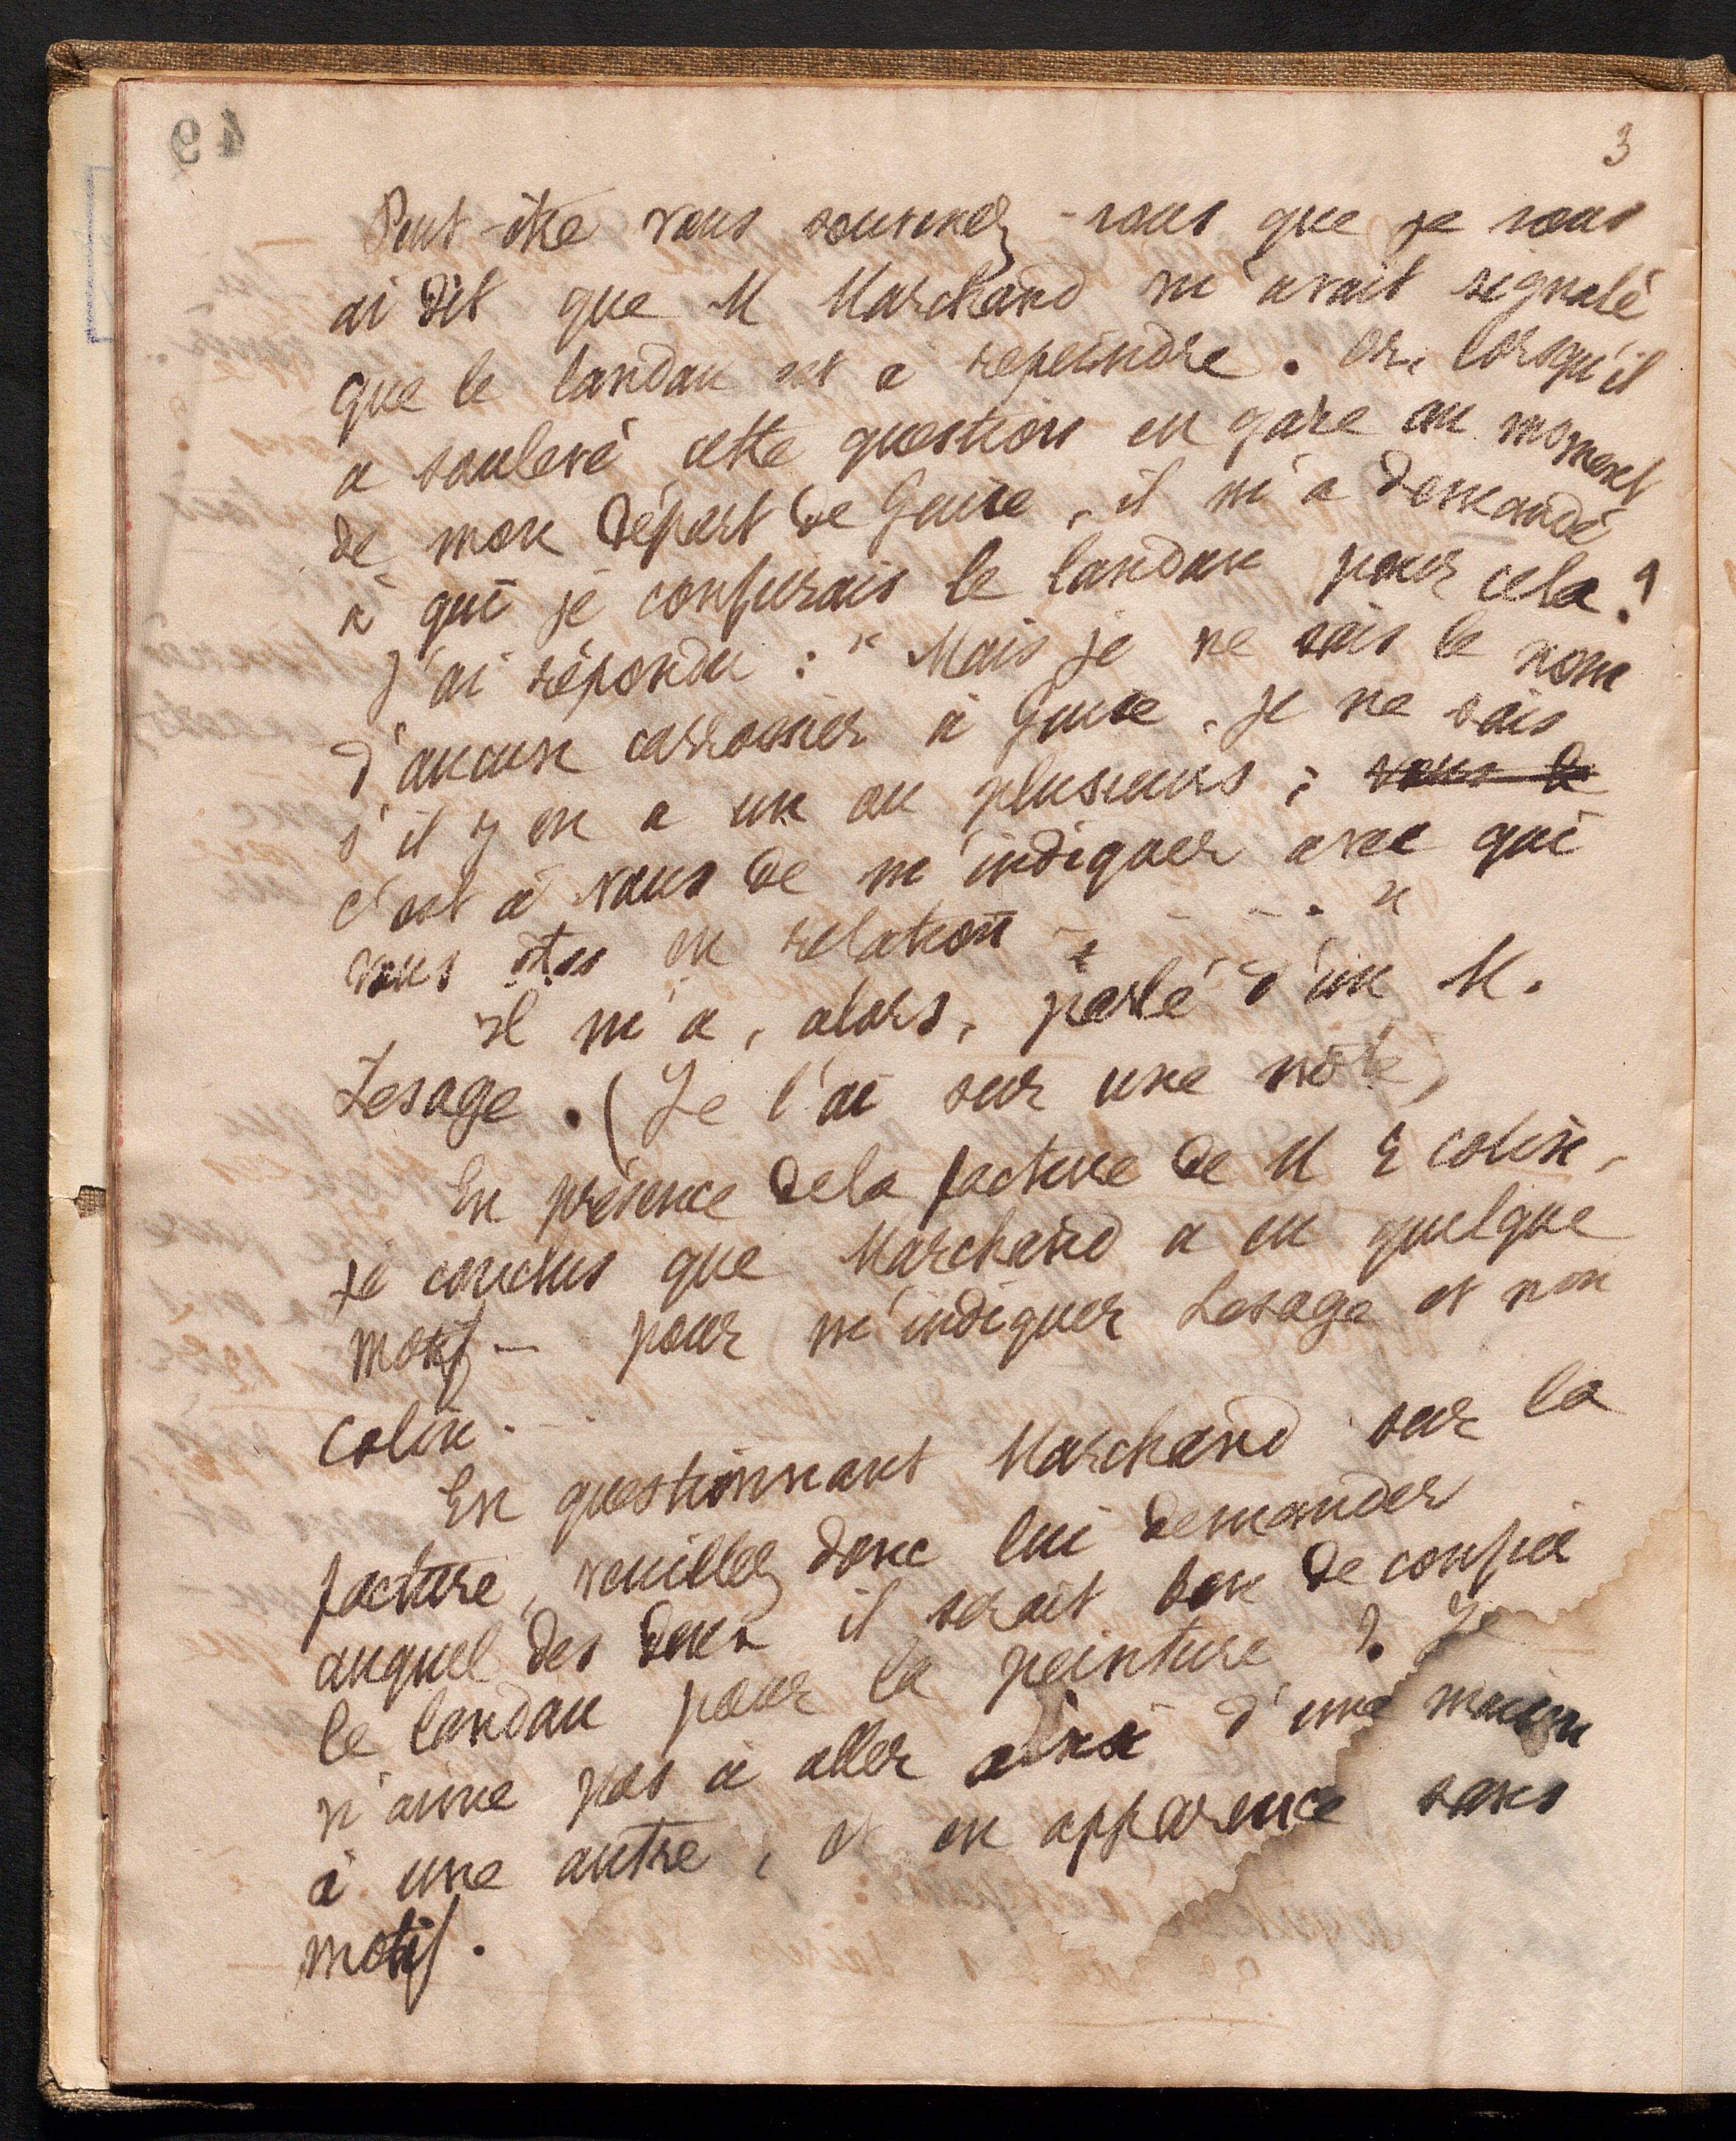 49
3
Peut-être vous souvenez-vous que je vous
ai dit que M Marchand m'avait signalé
que le landau est à repeindre. Or, lorsqu'il
a soulevé cette question en gare au moment
de mon départ de Guise, il m'a demandé
à qui je confierais le landau pour cela ?
J'ai répondu : " Mais je ne sais le nom
d'aucun carrossier à Guise. Je ne sais
s'il y en a un ou plusieurs ; vous le
c'est à vous de m'indiquer avec qui
vous êtes en relation - - - . "
Il m'a, alors, parlé d'un M.
Lesage. (Je l'ai sur une note)
En présence de la facture de M E Colin,
je conclus que Marchand a eu quelque
motif - pour m'indiquer Lesage et non
Colin.
En questionnant Marchand sur la
facture, veuillez donc lui demander
auquel des deux il serait bon de confier
le landau pour la peinture ? Je
n'aime pas à aller ainsi d'une maison
à une autre, et en apparence sans
motif.